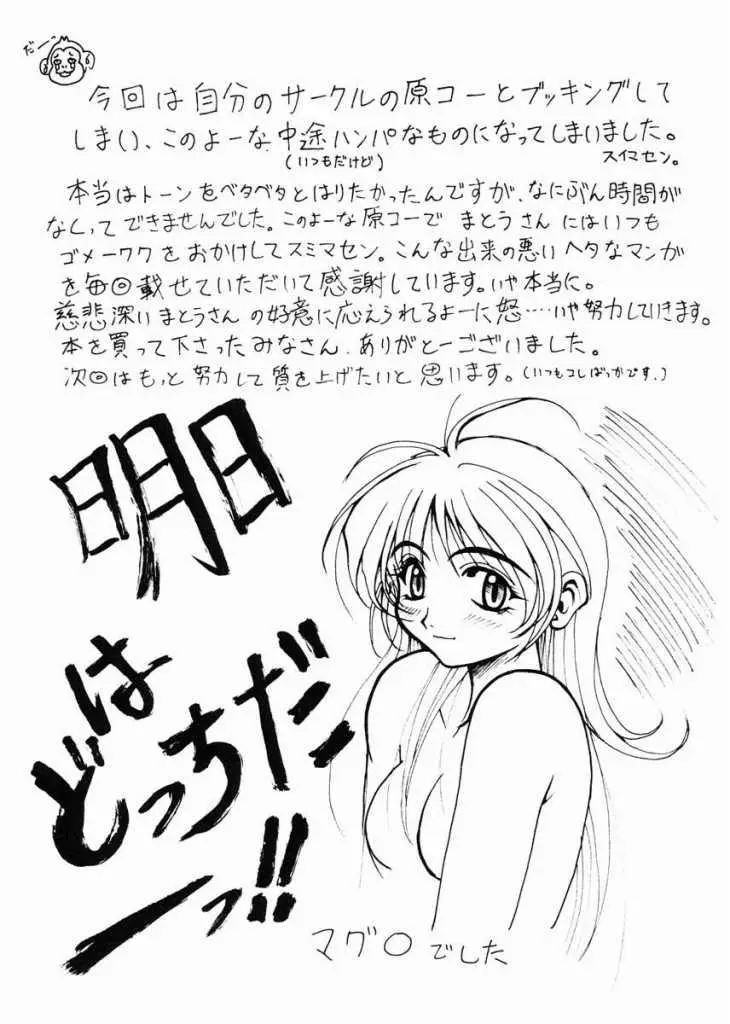 だー
今回は自分のサークルの原コーとブッキングして
しまい、このよーな中途ハンパなものになってしまいました。
(いつもだけど)
スイマセン。
本当はトーンをベタベタとはりたかったんですが、なにぶん時間が
なくってできませんでした。このよーな原コーで まとうさん にはいつも
ゴメーワクをおかけしてスミマセン。こんな出来の悪いヘタなマンガ
を毎回載せていただいて感謝しています。いや本当に。
慈悲深いまとうさんの好意に応えられるよーに怒……いや努力していきます。
本を買って下さったみなさん、ありがとーございました。
次回はもっと努力して質を上げたいと思います。(いつもコレばっかです。)
明日
は
どっちだ
ーッ!!
マグロでした